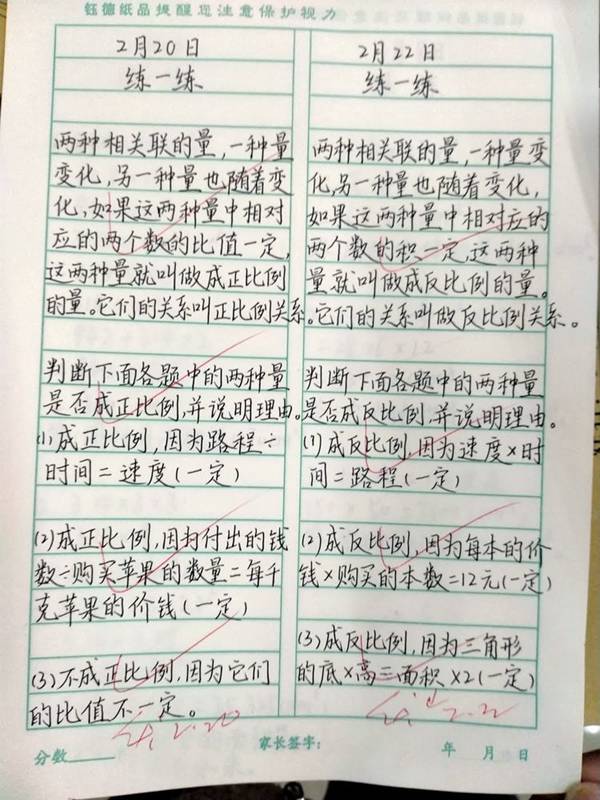 钰德纸品提醒您注意保护视力
2月20日
练一练
两种相关联的量,一种量
变化,另一种量也随着变
化,如果这两种量中相对
应的两个数的比值一定,
这两种量就叫做成正比例
的量。它们的关系叫正比例关系。
判断下面各题中的两种量
是否成正比例,并说明理由。
(1)成正比例,因为路程÷
时间=速度(一定)
(2)成正比例,因为付出的钱
数÷购买苹果的数量=每千
克苹果的价钱(一定)
(3)不成正比例,因为它们
的比值不一定。
2.20
2月22日
练一练
两种相关联的量,一种量变
化,另一种量也随着变化,
如果这两种量中相对应的
两个数的积一定,这两种
量就叫做成反比例的量。
它们的关系叫做反比例关系。
判断下面各题中的两种量
是否成反比例,并说明理由。
(1)成反比例,因为速度×时
间=路程(一定)
(2)成反比例,因为每本的价
钱×购买的本数=12元(一定)
(3)成反比例,因为三角形
的底×高=面积×2(一定)
2.22
分数 家长签字: 年 月 日